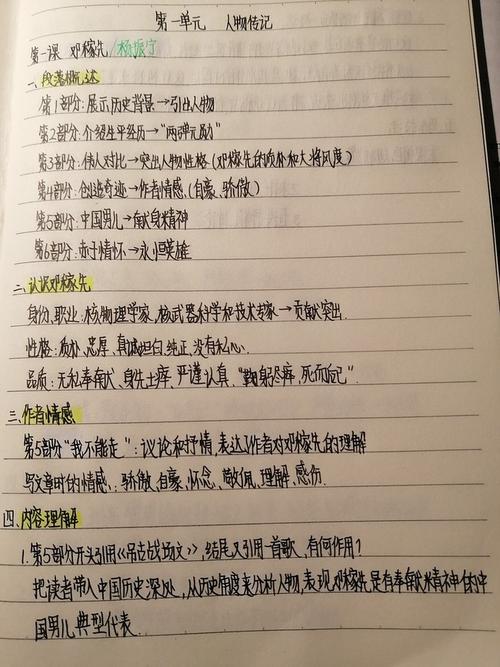 第一单元 人物传记
第一课 邓稼先/杨振宁
一、段落概述
第1部分:展示历史背景→引出人物
第2部分:介绍生平经历→"两弹元勋"
第3部分:伟人对比→突出人物性格(邓稼先的质朴和大将风度)
第4部分:创造奇迹→作者情感(自豪、骄傲)
第5部分:中国男儿→奉献精神
第6部分:赤子情怀→永恒英雄
二、认识邓稼先
身份、职业:核物理学家,核武器科学和技术专家→贡献突出.
性格:质朴、忠厚、真诚坦白、纯正、没有私心.
品质:无私奉献、身先士卒、严谨认真、"鞠躬尽瘁,死而后已".
三、作者情感
第5部分"我不能走":议论和抒情,表达了作者对邓稼先的理解
写文章时的情感:骄傲、自豪、怀念、敬佩、理解、感伤.
四、内容理解
1.第5部分开头引用《吊古战场文》,结尾又引用一首歌,有何作用?
把读者带入中国历史深处,从历史角度来分析人物,表现邓稼先是有奉献精神的中
国男儿典型代表.